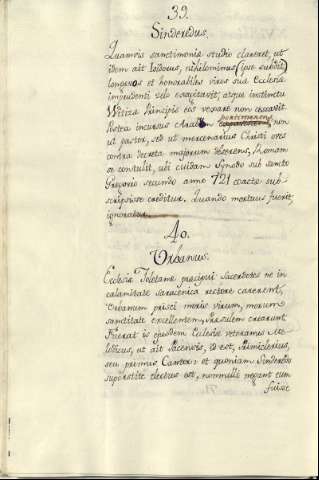 39.
Sinderedus.
Quamvis sanctimoniæ studio clareret, ut
idem ait Isidorus, nihilominus (post subdit)
longevos et honorabiles viros sua Ecclesia
imprudenti zelo exagitavit, atque instinctu
Witizæ Principis eos vexare non cessavit.
Postea incursus Arabum pertimescens, non
ut pastor, sed ut mercenarius Christi oves
contra decreta majorum deserens, Romam
se contulit, ubi cuidam Synodo sub sancto
Gregorio secundo anno 721 coactæ sub-
scripsisse creditur. Quando mortuus fuerit,
ignoratur.
40.
Urbanus.
Ecclesiæ Toletanæ præcipui Sacerdotes ne in
calamitate sarracenica rectore carerent,
Urbanum prisci moris virum, morum
sanctitate excellentem, Præsulem crearunt.
Fuerat is ejusdem Ecclesiæ veteranus Me-
lodicus, ut ait Pacensis, id est, Primiclerius,
seu primus Cantor: et quoniam Sinderedo
superstite electus est, nonnulli negant eum
fuisse